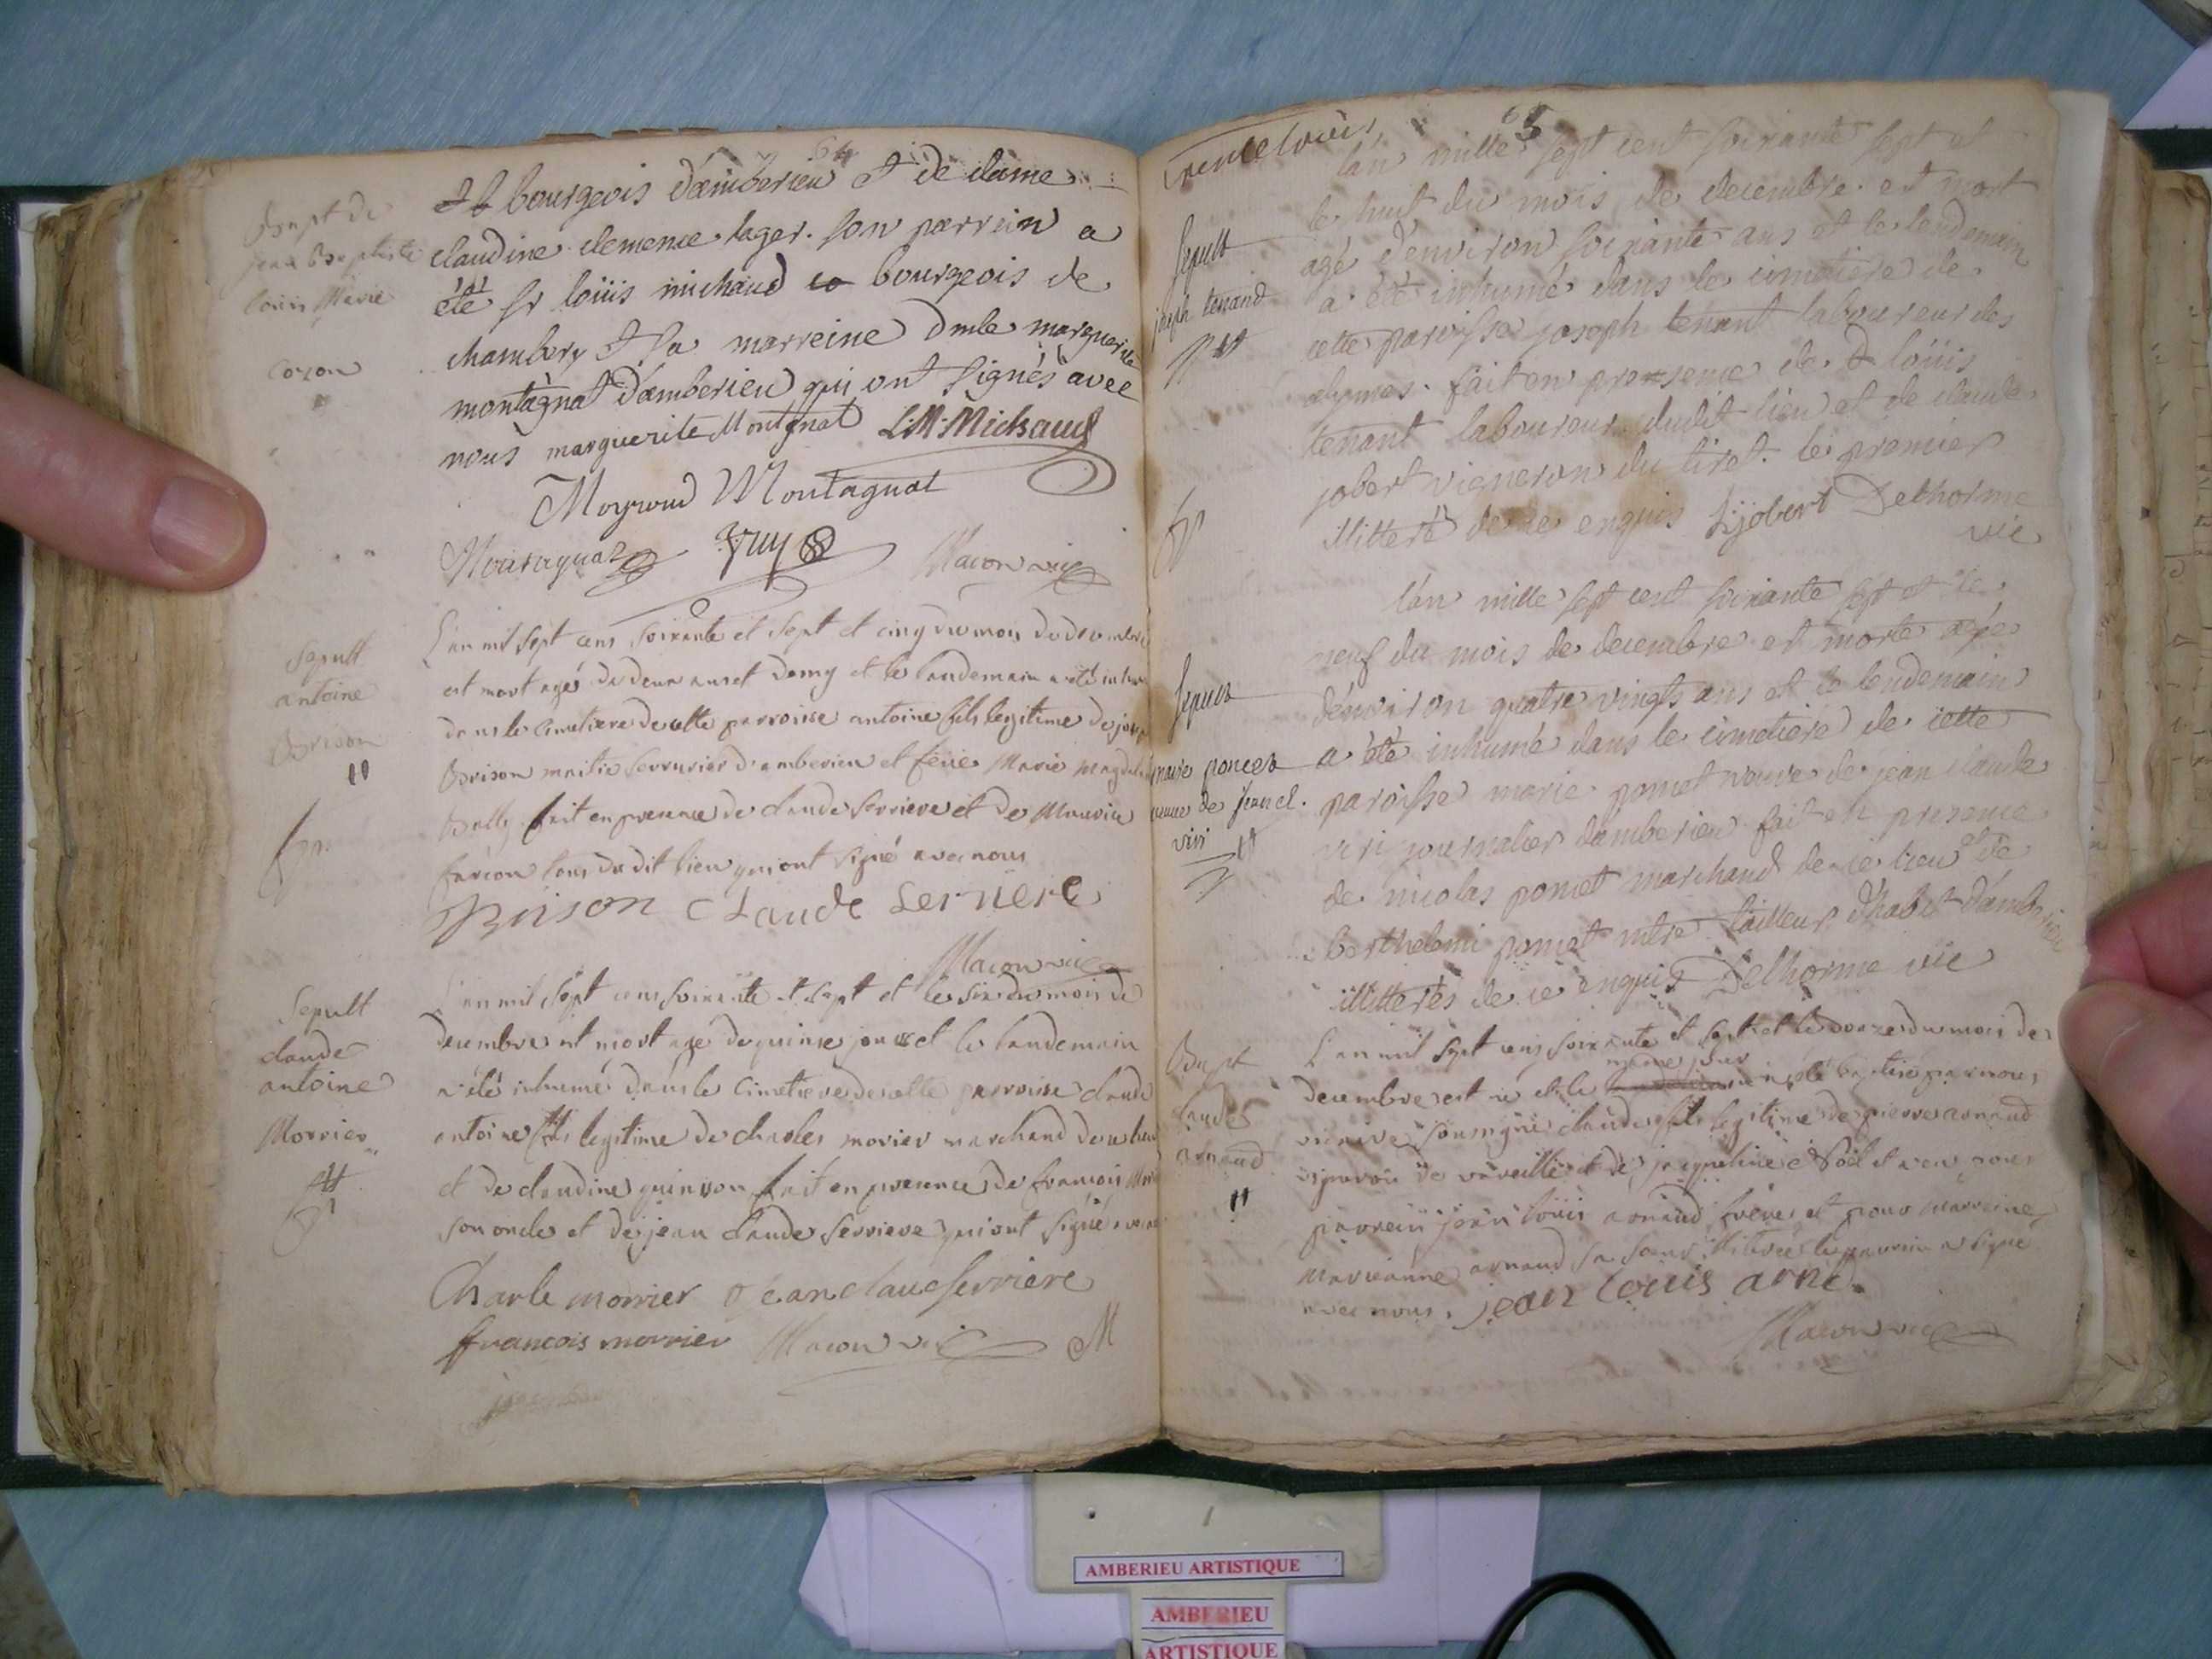 64
bapt de
jean baptiste
louis Marie
cozon
bourgeois d'ambérieu et de dame
claudine clemence lager. son parrein a
été sr loüis michaud bourgeois de
chambery et sa marreine dmle marguerite
montagnat d'amberieu qui ont signés avec
nous marguerite Montgnat L:M:Michaud
Montagnat
Macon vic
sepult
antoine
Brison
L'an mil sept cens soixante et sept et cinq du mois de decembre
est mort agé de deux ans et demy et le landemain a eté inhu
dans le cimetiere de cette parroisse antoine fils legitime de jose
Brison maitre serrurier d'amberieu et feüe Marie magdel
Bally fait en presence de claude serriere et de Maurice
farcon tous du dit lieu qui ont signé avec nous
Brison Claude serriere
Macon vic
sepult
claude
antoine
Morrier
L'an mil sept cens soixante et sept et le six du mois de
decembre est mort agé de quinse jours et le landemain
a été inhumé dans le cimetiere de cette parroisse claude
antoine fils legitime de charles morier marchand de ce lieu
et de claudine quinson fait en presence de francois
son oncle et de jean claude serriere qui ont signé avec
Charle morrier Jean claude serriere
francois morrier Macon vic M
65
sepult
joseph tenand
l'an mille sept cent soixante sept et
le huit du mois de decembre est mort
agé d'environ soixante ans et le lendemain
a été inhumé dans le cimetiere de
cette paroisse joseph tenant laboureur des
fait en presence de loüis
tenant laboureur dudit lieu et de claude
jobert vigneron du tiret. le premier
illitteré de ce enquis jobert Delhorme
vic
sepult
marie poncet
veuve de jean cl.
viri
l'an mille sept cent soixante sept et le
neuf du mois de decembre est morte agée
d'environ quatre vingts ans et le lendemain
a été inhumé dans le cimetiere de cette
paroisse marie pomet veuve de jean claude
viri journalier d'amberieu fait en presence
de nicolas pomet marchand de ce lieu et de
berthelemi pomet mtre tailleur d'habit d'amberieu
illitterés de ce enquis Delhorme vic
Bapt
claude
arnaud
L'an mil sept cens soixante et sept et le douze du mois de
même jour
decembre est né et le a eté baptisé par nous
vicaire soussigné claude fils legitime de pierre arnaud
vigneron de vareille et de jacqueline et a eu pour
parrein jean louis arnaud frere et pour marreine
marianne arnaud sa soeur illitérée le parrein a signé
avec nous. jean louis arnt.
Macon vic
AMBERIEU ARTISTIQUE
AMBERIEU
ARTISTIQUE